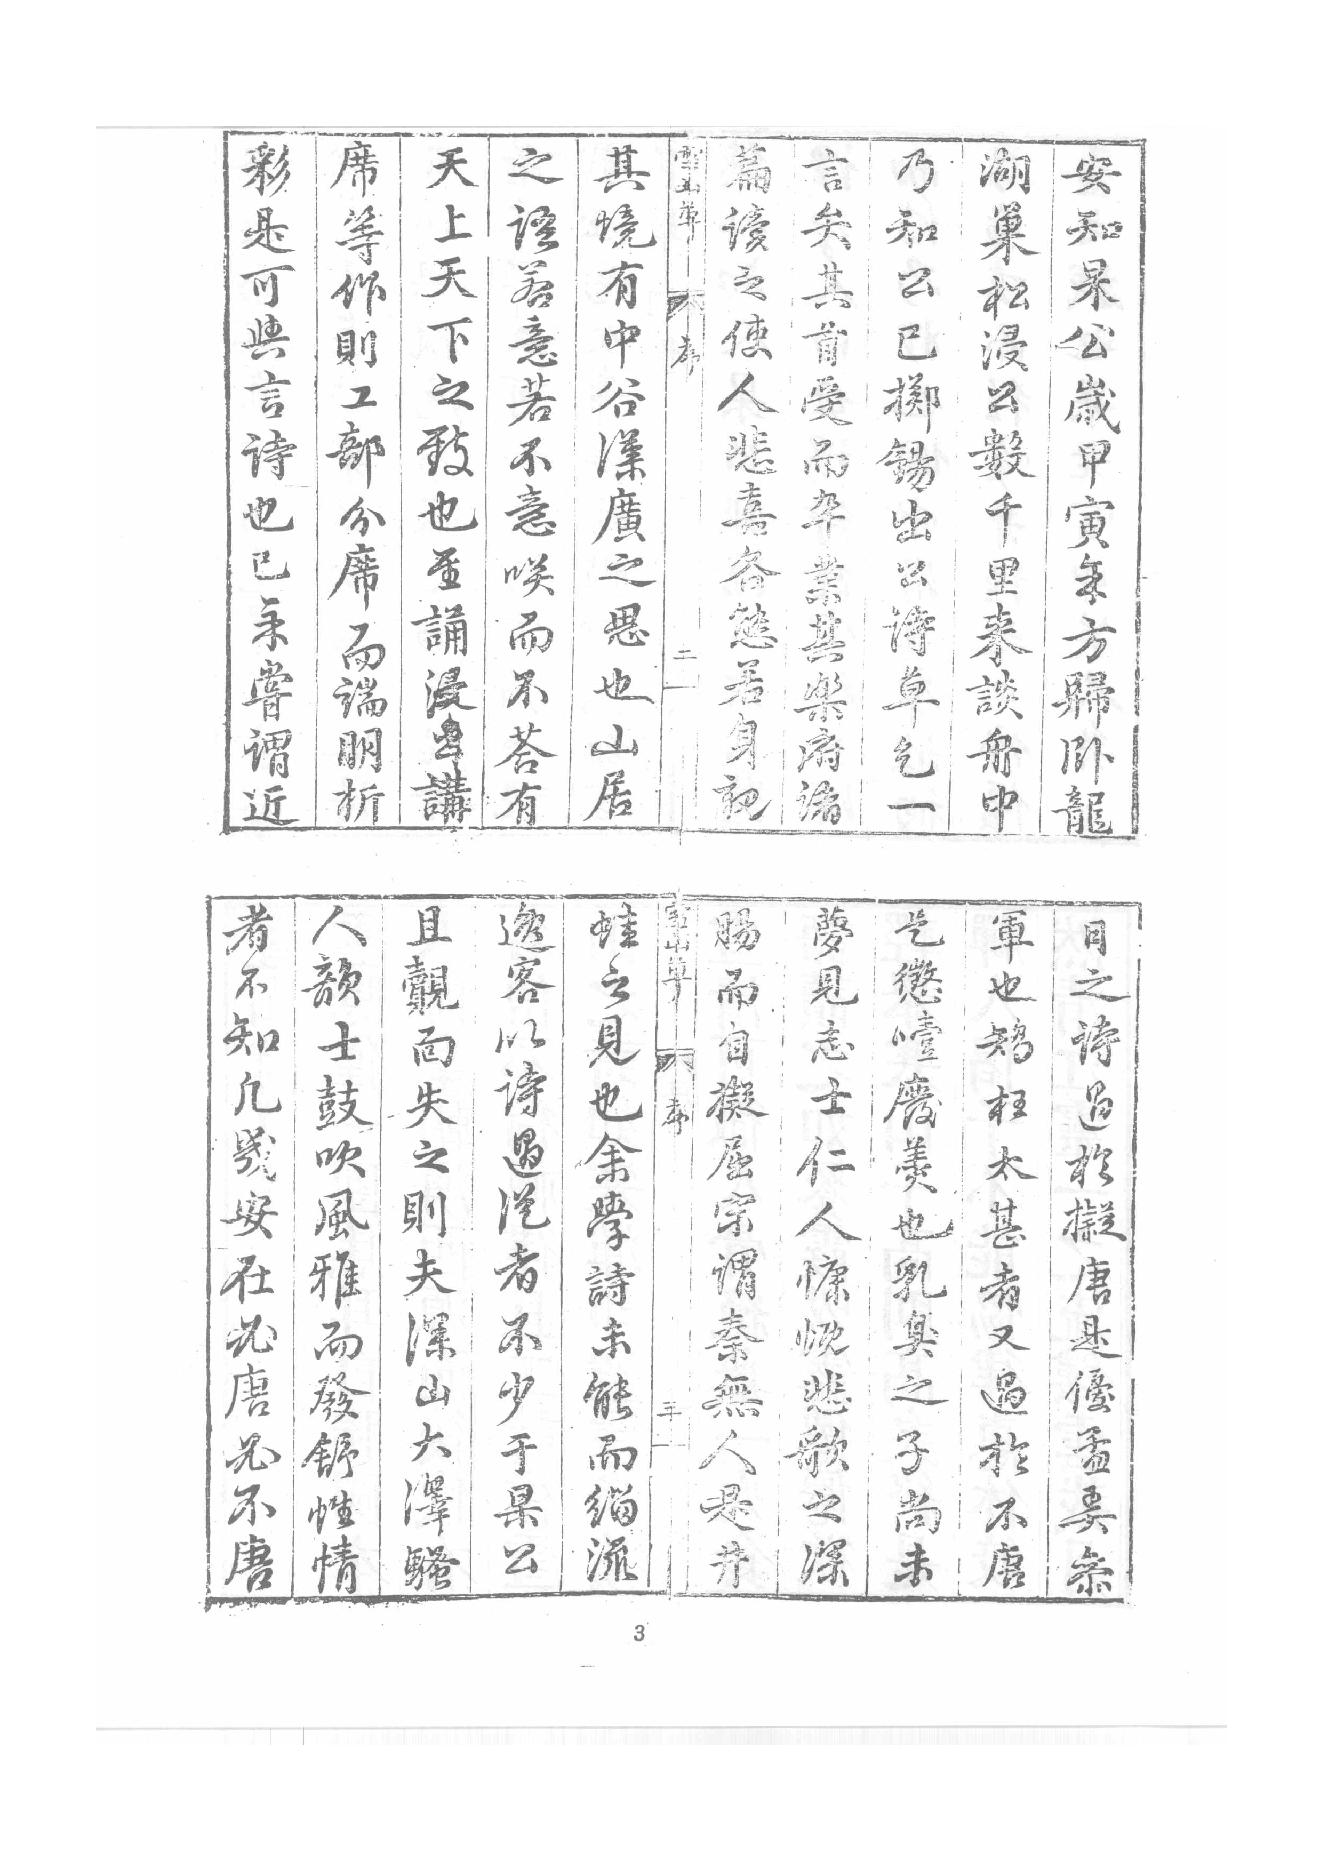 安知杲公歲甲寅年方歸卧龍
湖巢松浸公數千里来談舟中
乃知公已擲錫出公詩草乞一
言矣其首受而卒業其樂府諸
篇讀之使人悲喜各態若身視
雪山草 序 二
其境有中谷漢廣之思也山居
之語若意若不意唉而不荅有
天上天下之致也至誦浸公講
席等作則工部分席而端明折
彩是可與言詩也已余嘗謂近
日之詩過於擬唐是優孟奏叅
軍也矯枉太甚者又過於不唐
乞懲噎廢羹也乳臭之子尚未
夢見志士仁人慷慨悲歌之深
腸而自擬屈宋謂秦無人是井
雪山草 序 三
蛙之見也余學詩未能而緇流
逸客以詩過從者不少于杲公
且覿面失之則夫深山大澤騷
人韻士鼓吹風雅而發舒性情
者不知凡幾安在光唐光不唐
3